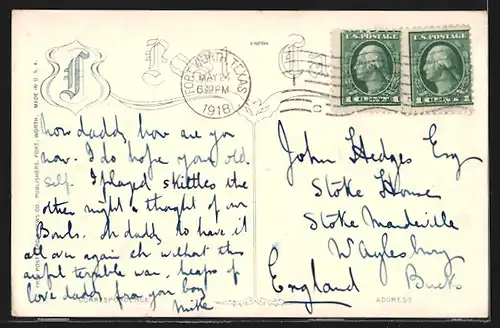 FORT WORTH, TEXAS
MAY 24
6 PM
1918
U.S. POSTAGE
U.S. POSTAGE
MADE IN U.S.A.
PUBLISHERS, FORT WORTH.
how daddy how are you
now. I do hope your old
self. I played skittles the
other night & thought of our
Bowls. Oh daddy to have it
all over again eh without this
awful terrible war. heaps of
love daddy from your boy
Mike
CORRESPONDENCE
John Hedges Esq
Stoke House
Stoke Mandeville
Waylesbury
Bucks
England
ADDRESS